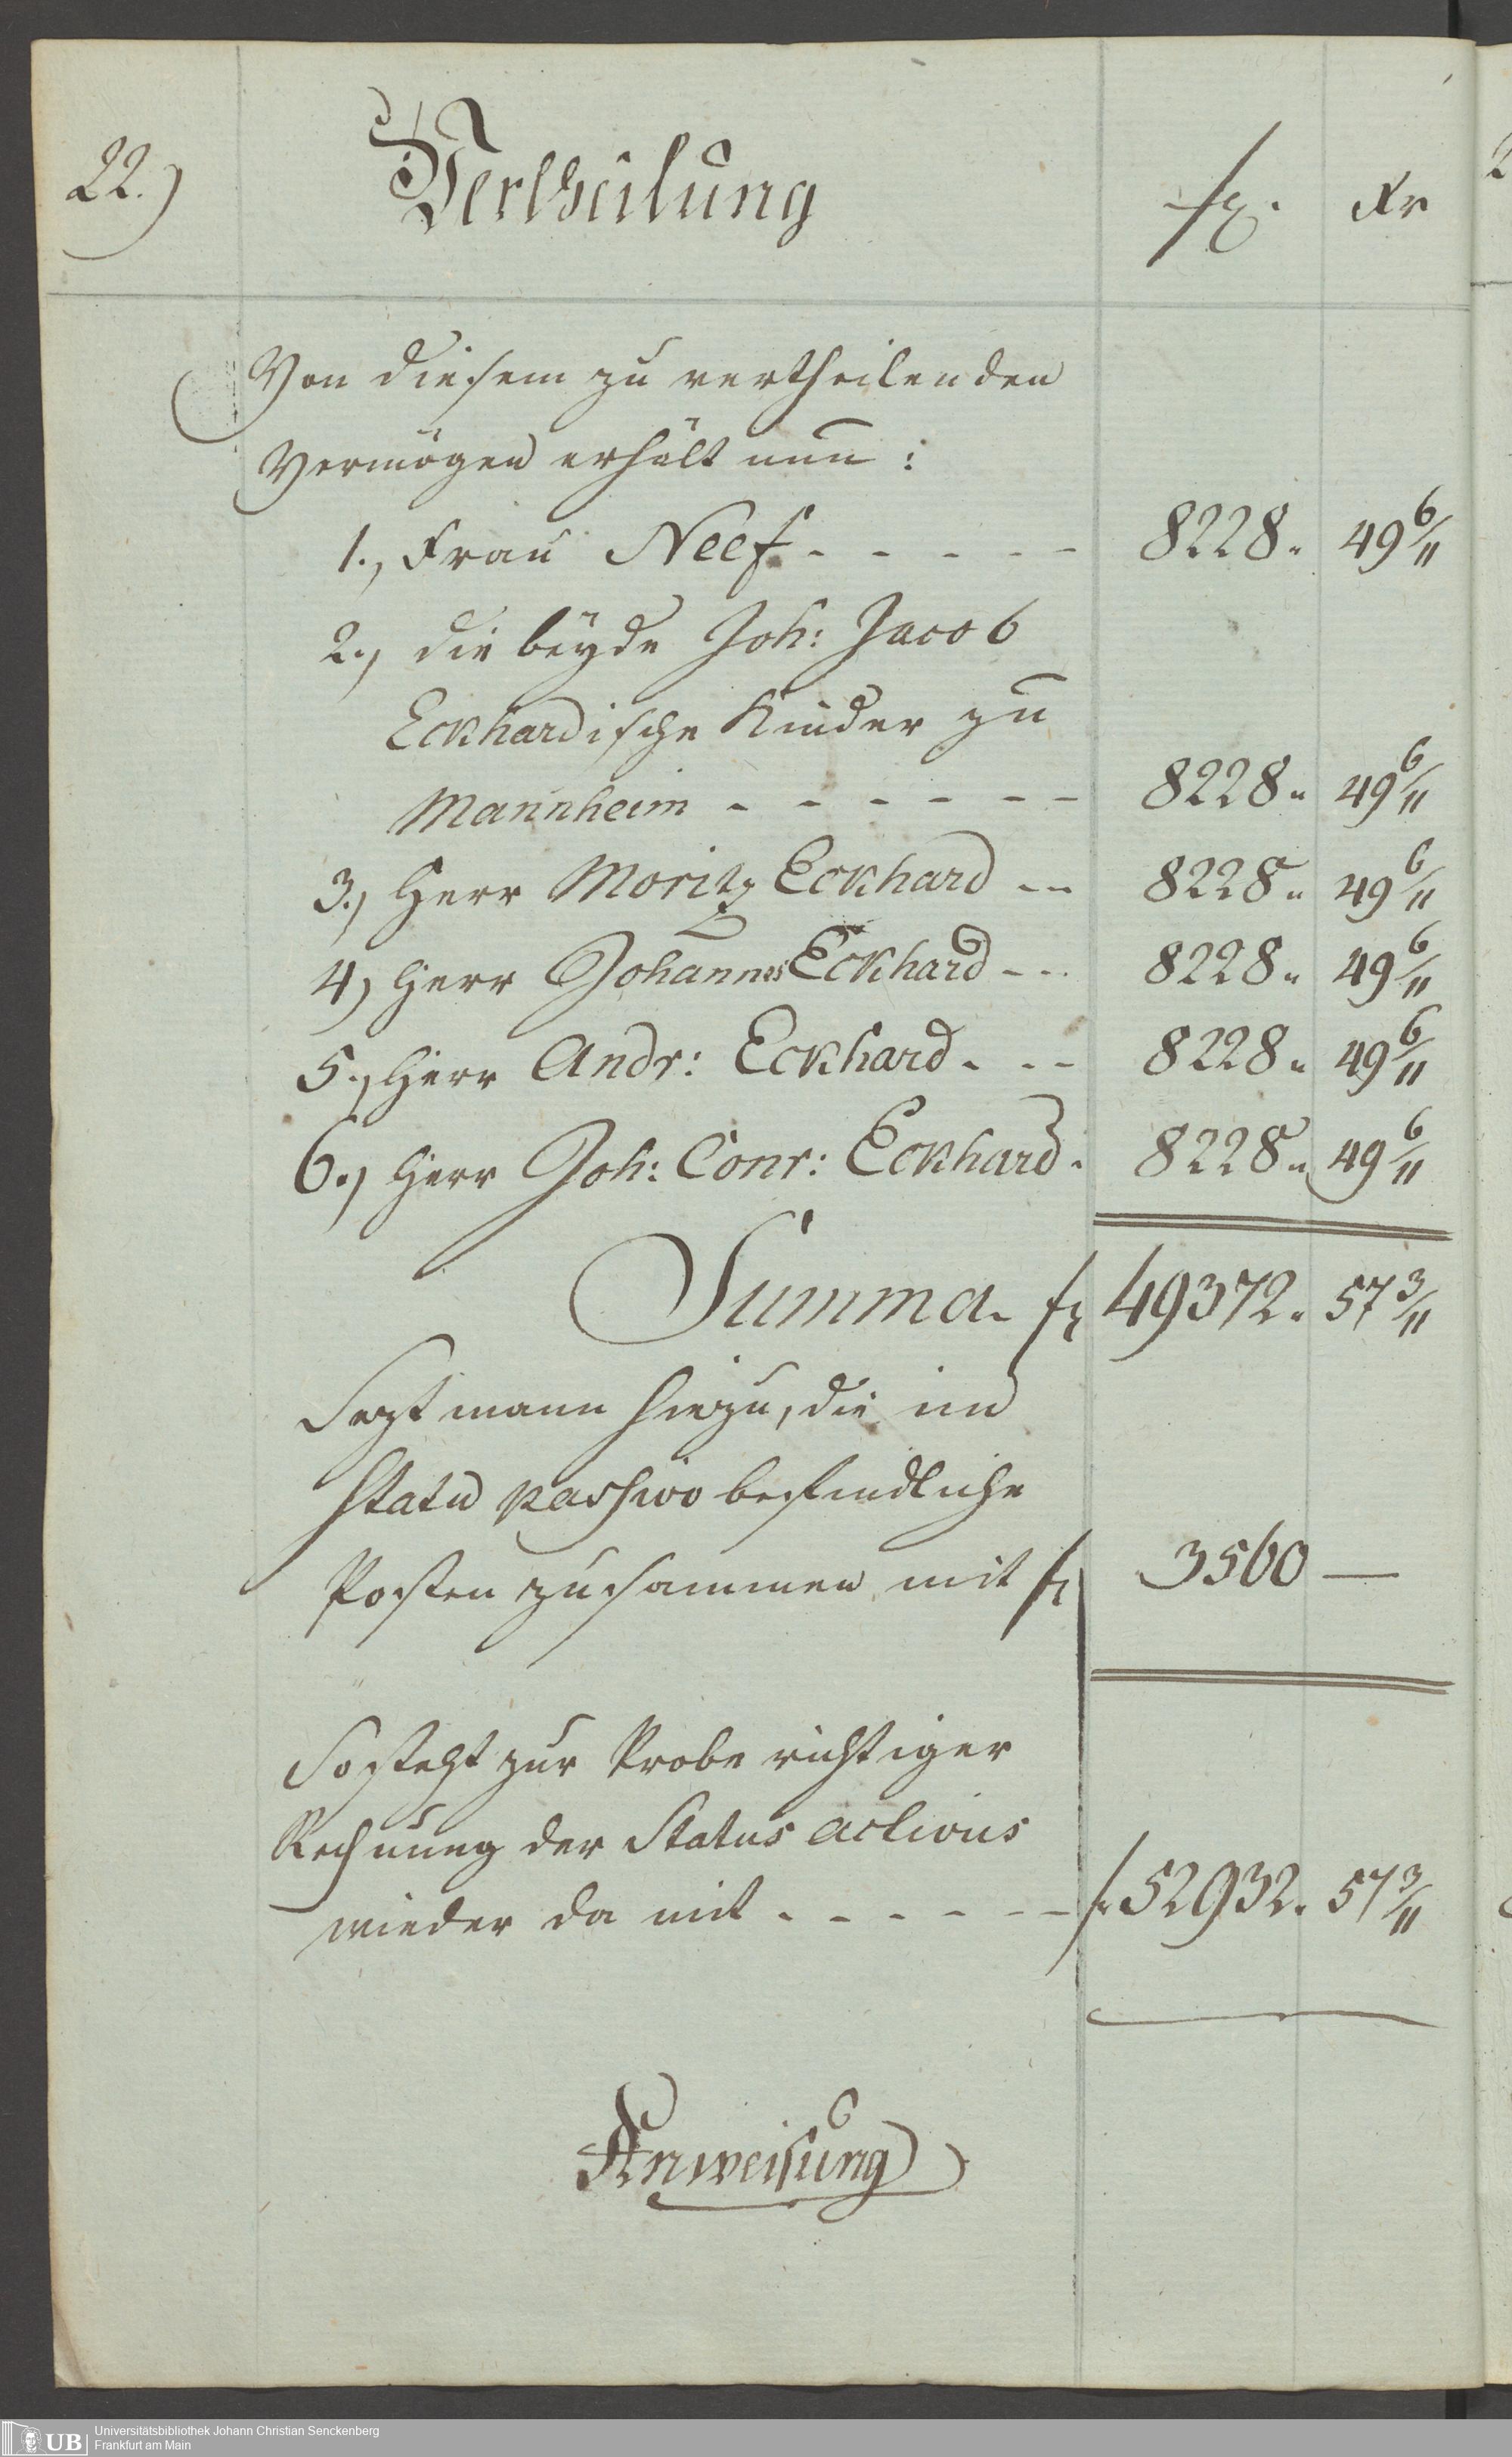 22.) Vertheilung f. Kr
Von diesem zu vertheilenden
Vermögen erhält nun:
1., Frau Neef - - - - - 8228. 49 6/11
2., die beyde Joh: Jacob
Eckhardische Kinder zu
Mannheim - - - - - - 8228. 49 6/11
3., Herr Moritz Eckhard - - 8228. 49 6/11
4) Herr Johannes Eckhard - - - 8228. 49 6/11
5., Herr Andr: Eckhard - - - 8228. 49 6/11
6., Herr Joh: Conr: Eckhard. 8228. 49 6/11
Summa. f 49372. 57 3/11
Sezt mann hiezu, die im
Statu passivo befindliche
Posten zusammen mit f 3560 —
So steht zur Probe richtiger
Rechnung der Status activus
wieder da mit - - - - - - f 52932. 57 3/11
Anweisung
UB Universitätsbibliothek Johann Christian Senckenberg
Frankfurt am Main